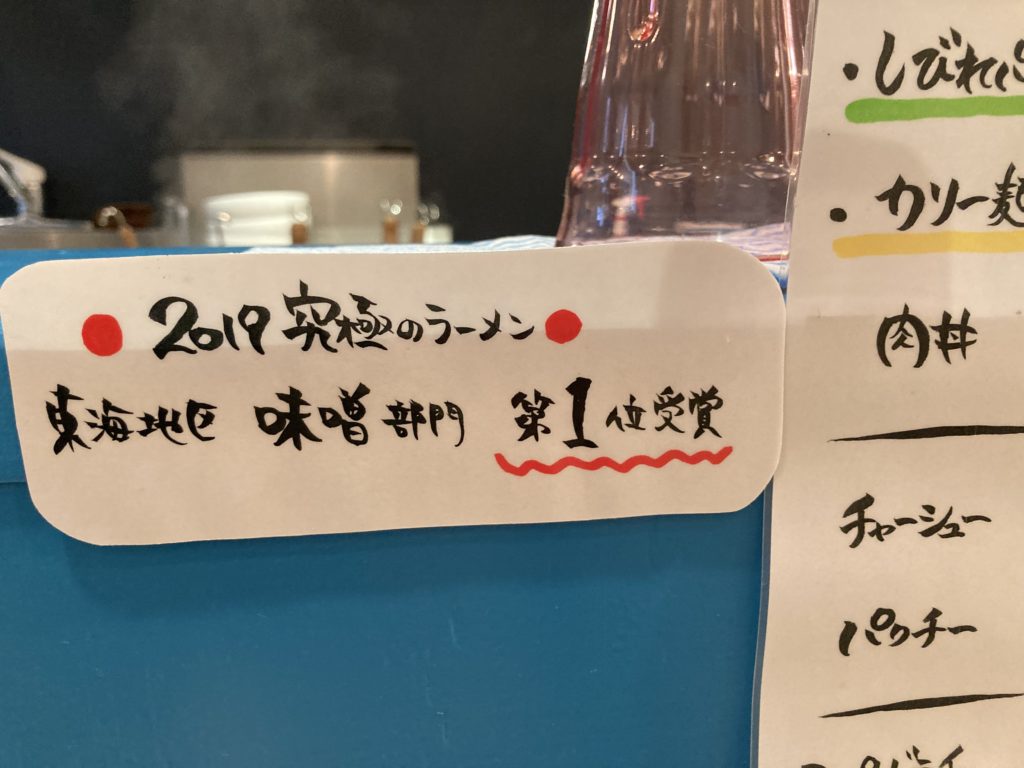 ● 2019 究極のラーメン ●
東海地区 味噌部門 第1位受賞
・しびれ
・カリー麺
肉丼
チャーシュー
パクチー